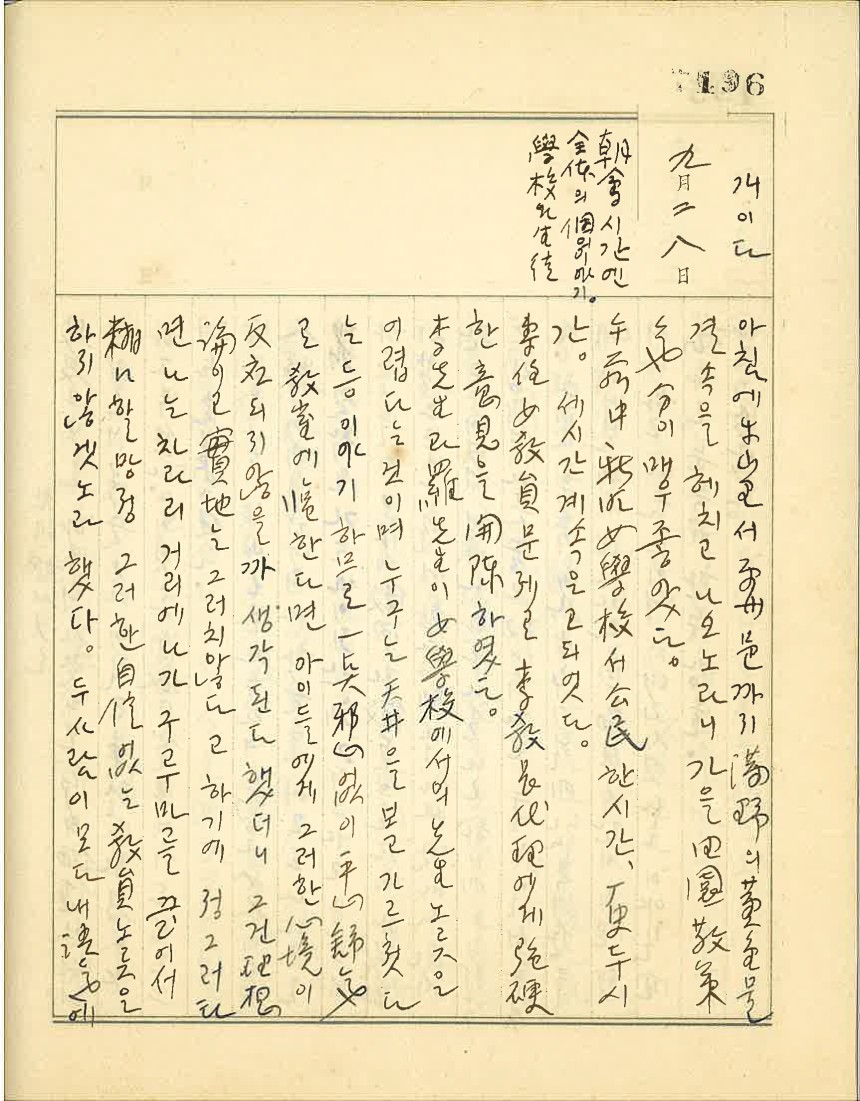 7196
개이다
九月二八日
朝會시간엔
全体의 個別이야기。
學校와 生徒
아침에 牛山里서 亞 면까지 滿野의 黃金물
결 속을 헤치고 나오노라니 가을 田園 散策
氣分이 매우 좋았다。
午前中 新 女學校서 公民 한시간、 歷史 두시
간。 세시간 계속을 고되엿다。
專任 女敎員 문제로 李敎長代理에게 強硬
한 意見을 開陳하였다。
李先生과 羅先生이 女學校에서의 先生노릇을
어렵다는 것이며 누구는 天井을 보고 가르쳣다
는 등 이야기 하므로 一点 邪心 없이 平心 氣
로 敎室에 臨한다면 아이들에게 그러한 心境이
反 되지 않을까 생각된다 했더니 그건 理想
論이고 實地는 그러치않다고 하기에 정 그러타
면 나는 차라리 거리에 나가 구루마를 끌어서
糊口할망정 그러한 自信 없는 敎員노릇을
하지 않겟노라 했다。 두사람이 모다 내 에